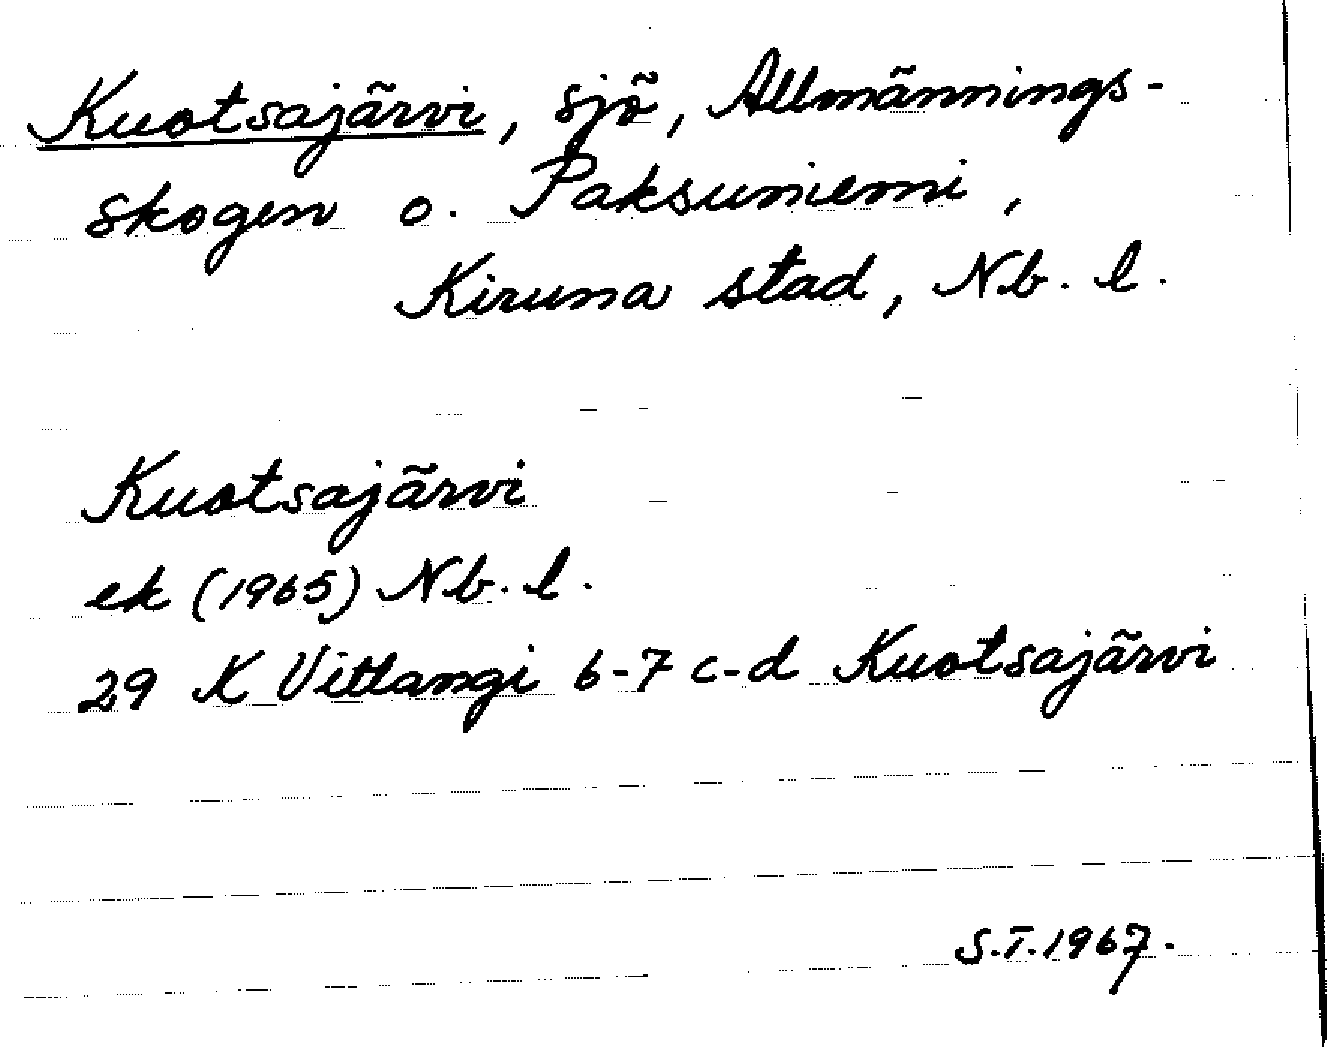 Kuotsajärvi, sjö, Allmännings-
skogen o. Paksuniemi,
Kiruna stad, Nb. l.
Kuotsajärvi
ek (1965) Nb. l.
29 K Vittangi 6-7 c-d Kuotsajärvi
S.T. 1967.